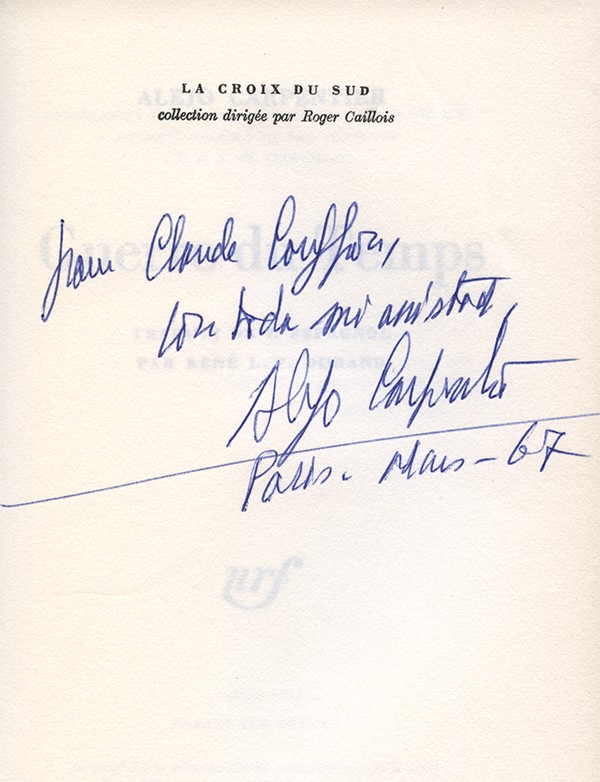 ALEJO CARPENTIER
LA CROIX DU SUD
collection dirigée par Roger Caillois
Claude Couffon,
con toda mi amistad,
Alejo Carpentier
Paris - Mars - 67
Guerre du Temps
TRADUIT DE L'ESPAGNOL
PAR RENÉ L.-F. DURAND
nrf